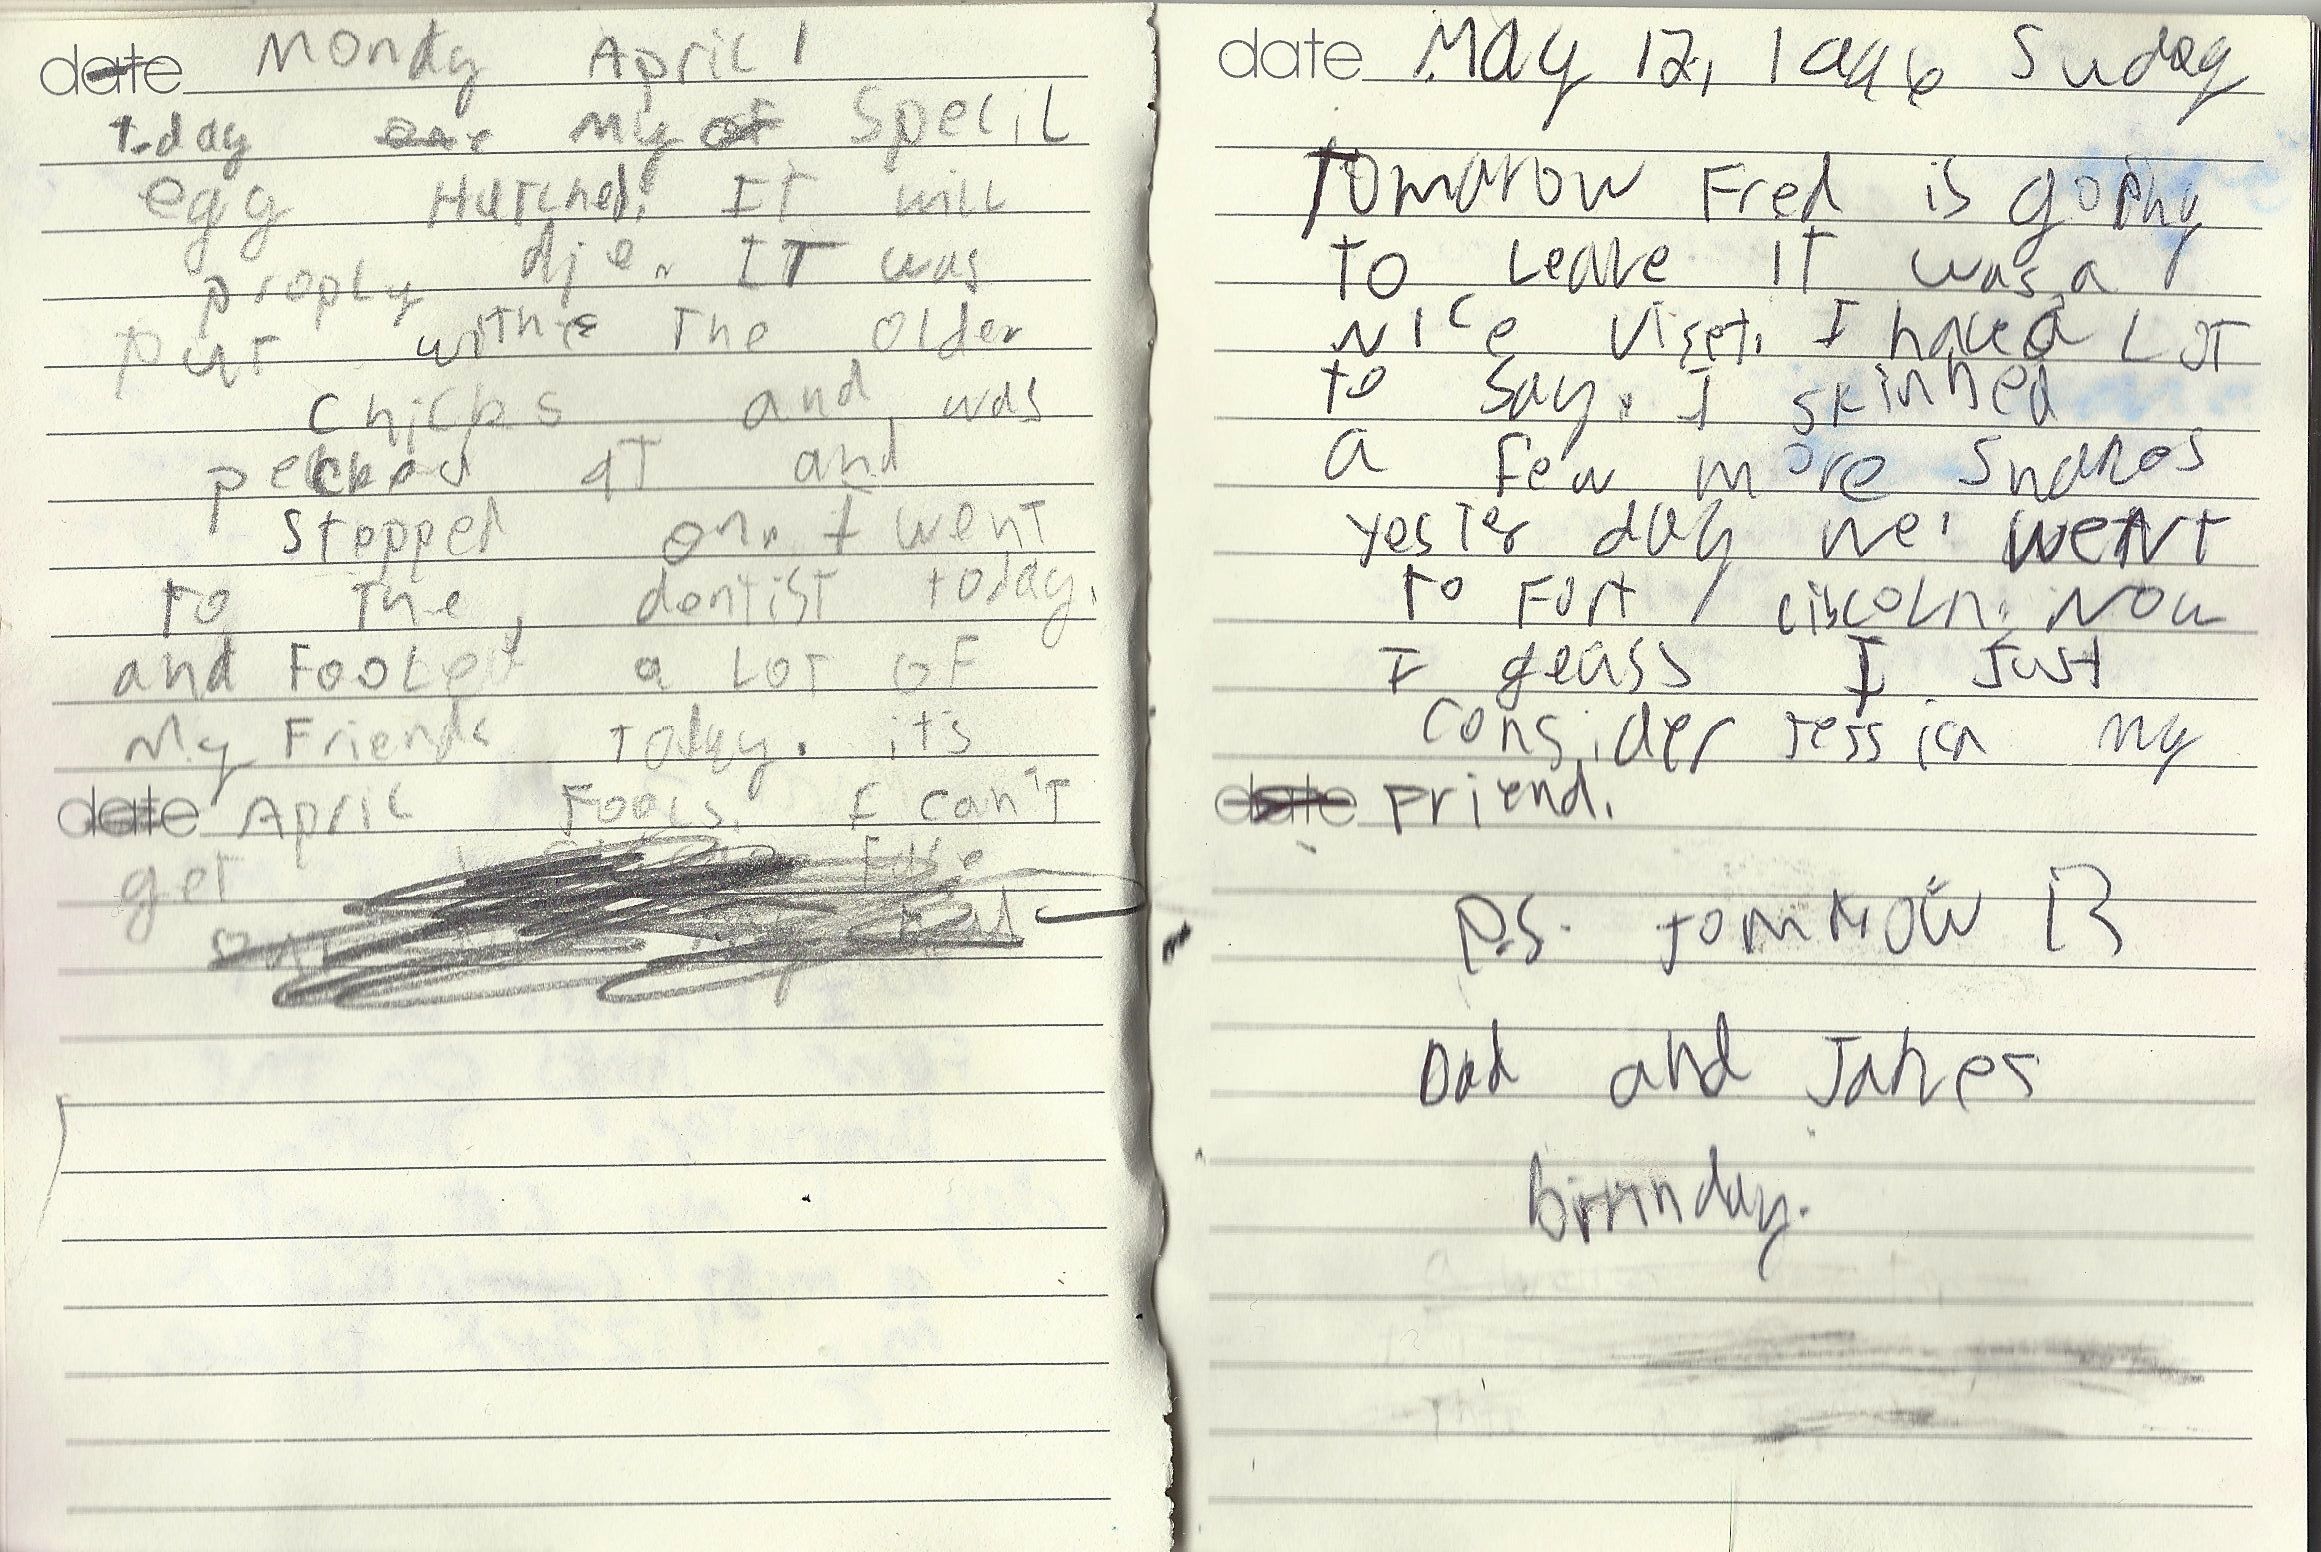 date Mondy April 1
today one my of Specil
egg Hatched! IT will
proply die. IT was
put withe The older
chicks and was
pecked at and
stepped on. I went
to The dentist today.
and Fooled a Lot of
My Friends today. it's
date April Fools. I can't
get
date May 12, 1996 Suday
Tomarow Fred is going
to Leave IT was a
nice viset. I have a Lot
to say. I skinned
a few more snakes
yester day we went
to Fort Liscoln. Now
I geuss I Just
consider my
date Friend.
P.S. tomrrow is
Dad and Janes
Birthday.